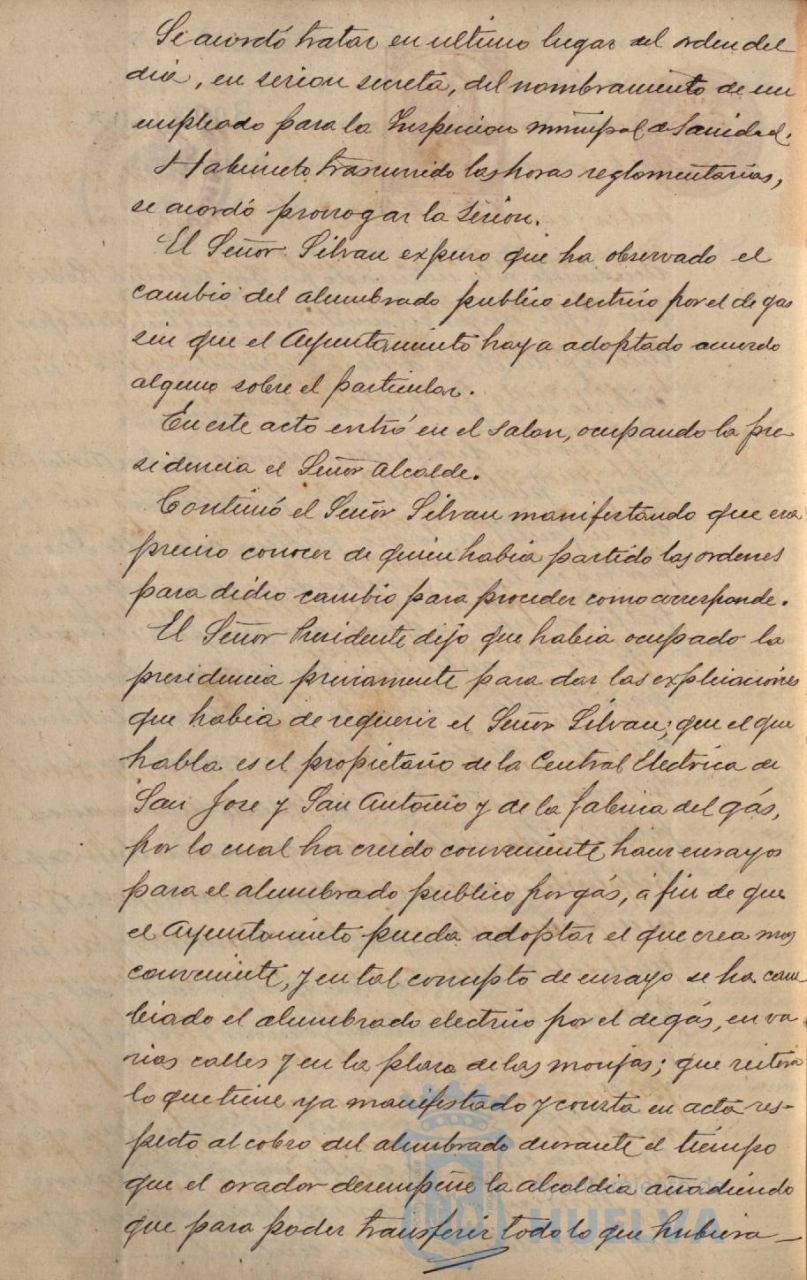 Se acordó tratar en ultimo lugar del orden del
dia, en sesion secreta, del nombramiento de un
empleado para la Inspeccion municipal de Sanidad.
Habiendo trascurrido las horas reglamentarias,
se acordó prorrogar la sesion.
El Señor Silvan expuso que ha observado el
cambio del alumbrado publico electrico por el de gas
sin que el Ayuntamiento haya adoptado acuerdo
alguno sobre el particular.
En este acto entró en el salon, ocupando la pre
sidencia el Señor Alcalde.
Continuó el Señor Silvan manifestando que era
preciso conocer de quien habia partido las ordenes
para dicho cambio para proceder como corresponde.
El Señor Presidente dijo que habia ocupado la
presidencia previamente para dar las explicaciones
que habia de requerir el Señor Silvan; que el que
habla es el propietario de la Central Electrica de
San Jose y San Antonio y de la fabrica del gás,
por lo cual ha creido conveniente hacer ensayos
para el alumbrado publico por gás, á fin de que
el Ayuntamiento pueda adoptar el que crea mas
conveniente, y en tal concepto de ensayo se ha cam
biado el alumbrado electrico por el de gás, en va
rias calles y en la plaza de las monjas; que reitera
lo que tiene ya manifestado y consta en acta res-
pecto al cobro del alumbrado durante el tiempo
que el orador desempeñe la alcaldia añadiendo
que para poder transferir todo lo que hubiera—
HUELVA